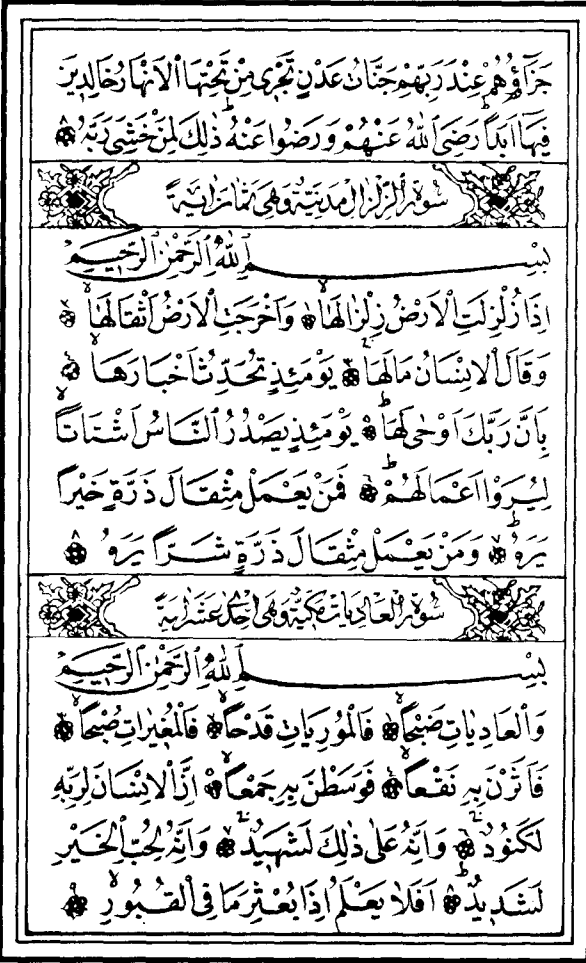 جَزَآؤُهُمْ عِنْدَ رَبِّهِمْ جَنَّاتُ عَدْنٍ تَجْرٖى مِنْ تَحْتِهَا الْاَنْهَارُ خَالِدٖينَ
فٖيهَٓا اَبَداًؕ رَضِىَ اللّٰهُ عَنْهُمْ وَرَضُوا عَنْهُؕ ذٰلِكَ لِمَنْ خَشِىَ رَبَّهُ ﴿٨﴾
سُورَةُ الزِّلْزَالِ مَدَنِيَّةٌ وَهِىَ ثَمَانُ اٰيَةً
بِسْمِ اللّٰهِ الرَّحْمٰنِ الرَّحٖيمِ
اِذَا زُلْزِلَتِ الْاَرْضُ زِلْزَالَهَاۙ ﴿١﴾ وَاَخْرَجَتِ الْاَرْضُ اَثْقَالَهَاۙ ﴿٢﴾
وَقَالَ الْاِنْسَانُ مَالَهَاۚ ﴿٣﴾ يَوْمَئِذٍ تُحَدِّثُ اَخْبَارَهَاۙ ﴿٤﴾
بِاَنَّ رَبَّكَ اَوْحٰى لَهَاؕ ﴿٥﴾ يَوْمَئِذٍ يَصْدُرُ النَّاسُ اَشْتَاتاًۙ
لِيُرَوْا اَعْمَالَهُمْؕ ﴿٦﴾ فَمَنْ يَعْمَلْ مِثْقَالَ ذَرَّةٍ خَيْراً
يَرَهُؕ ﴿٧﴾ وَمَنْ يَعْمَلْ مِثْقَالَ ذَرَّةٍ شَراًّ يَرَهُ ﴿٨﴾
سُورَةُ الْعَادِيَاتِ مَكِّيَّةٌ وَهِىَ اِحْدٰى عَشَرَ اٰيَةً
بِسْمِ اللّٰهِ الرَّحْمٰنِ الرَّحٖيمِ
وَالْعَادِيَاتِ ضَبْحاًۙ ﴿١﴾ فَالْمُورِيَاتِ قَدْحاًۙ ﴿٢﴾ فَالْمُغٖيرَاتِ صُبْحاًۙ ﴿٣﴾
فَاَثَرْنَ بِهٖ نَقْعاًۙ ﴿٤﴾ فَوَسَطْنَ بِهٖ جَمْعاًۙ ﴿٥﴾ اِنَّ الْاِنْسَانَ لِرَبِّهٖ
لَكَنُودٌۚ ﴿٦﴾ وَاِنَّهُ عَلٰى ذٰلِكَ لَشَهٖيدٌۚ ﴿٧﴾ وَاِنَّهُ لِحُبِّ الْخَيْرِ
لَشَدٖيدٌؕ ﴿٨﴾ اَفَلَا يَعْلَمُ اِذَا بُعْثِرَ مَا فِى الْقُبُورِۙ ﴿٩﴾